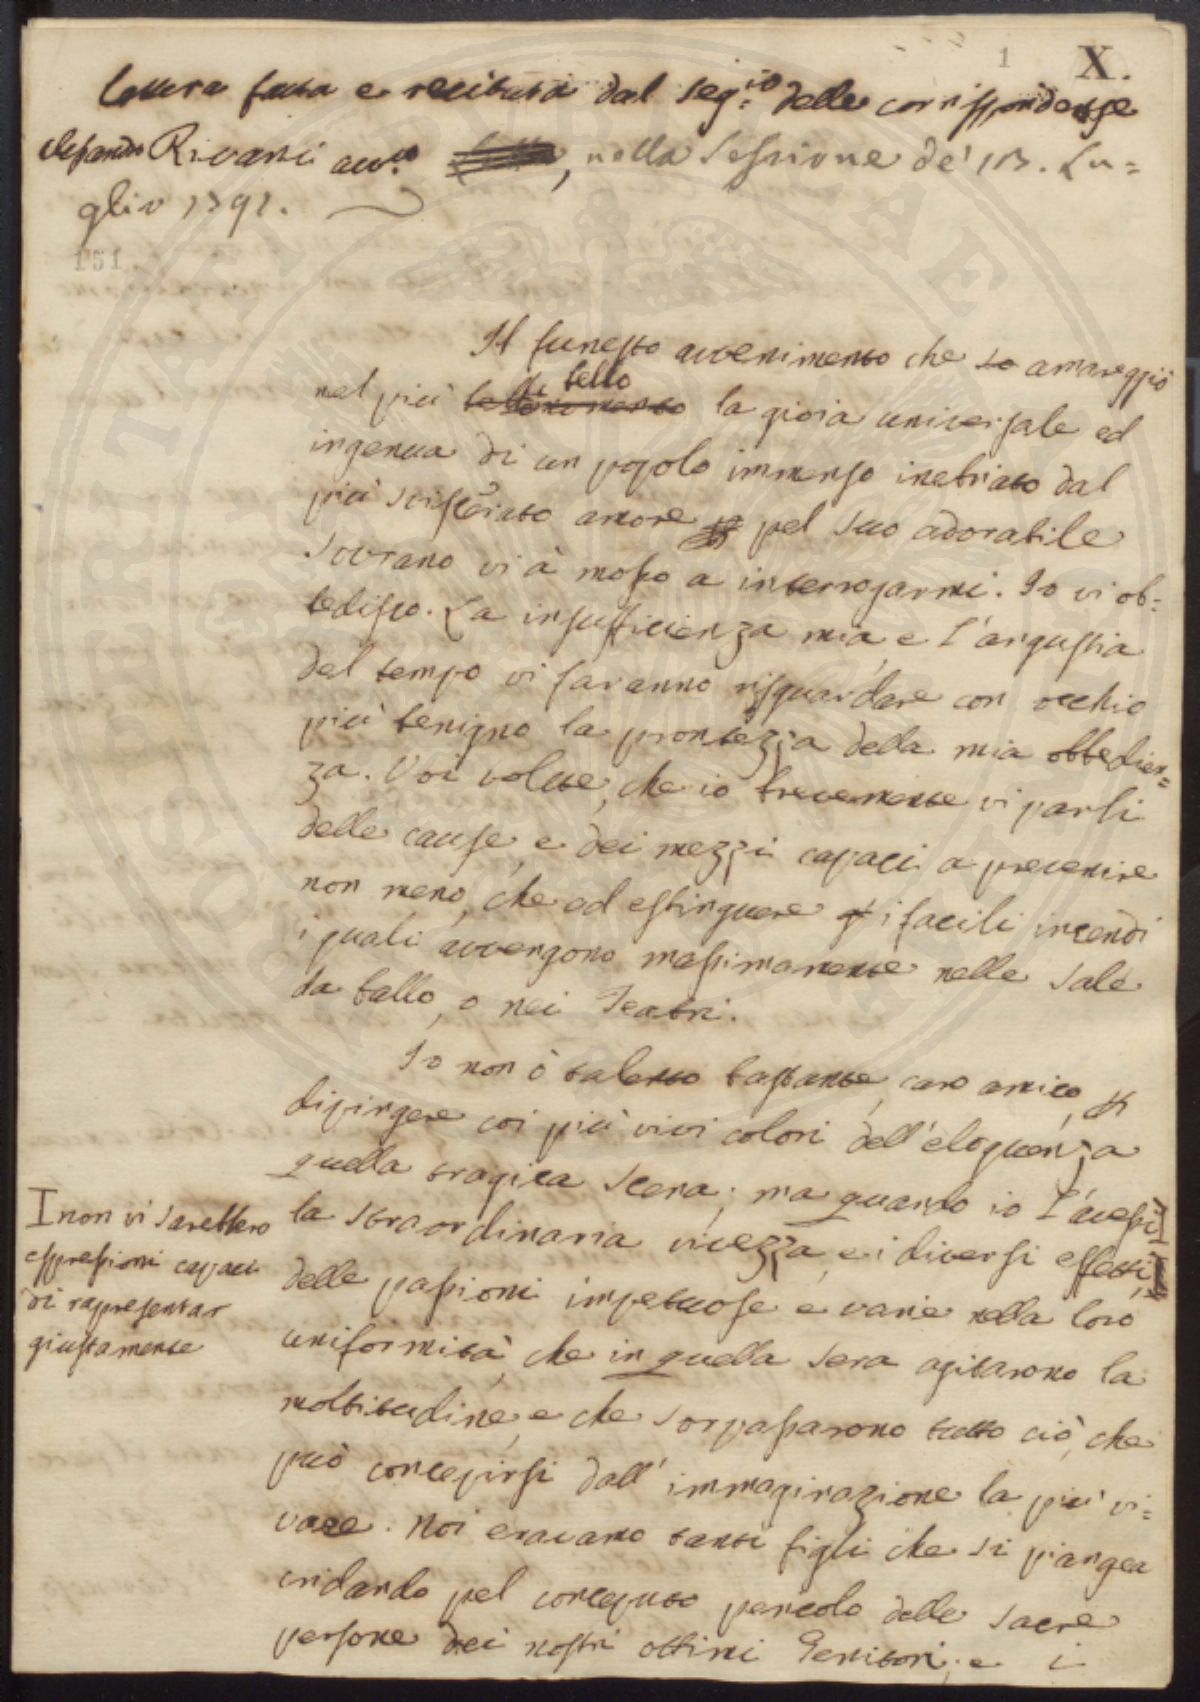 1 X.
Lettera fatta e recitata dal Seg.io delle corrispondenze
Rivani avv.o, nella Sessione de' 13. Lu=
glio 1791.
151
Il funesto avvenimento che so amareggiò
nel più bello momento di bello la gioia universale ed
ingenua di un popolo immenso inebriato dal
più sviscerato amore pel suo adorabile
Sovrano vi à mosso a interrogarmi. Io vi ob=
bedisco. La insufficienza mia, e l'angustia
del tempo vi faranno risguardare con occhio
più benigno la prontezza della mia obbedien=
za. Voi volete, che io brevemente vi parli
delle cause, e dei mezzi capaci a prevenire
non meno, che ad estinguere gl' i facili incendi
i quali avvengono massimamente nelle Sale
da ballo, o nei Teatri.
Io non ò talento bastante, caro amico, di
dipingere coi più vivi colori dell'eloquenza
quella tragica Scena; ma quando io l'avessi
I non vi sarebbero
espressioni capaci
di rapresentar
giustamente
la straordinaria vivezza, e i diversi effetti
delle passioni impetuose e varie nella loro
uniformità, che in quella sera agitarono la
moltitudine, e che sorpassarono tutto ciò, che
può concepirsi dall' immaginazione la più vi=
vace. Noi eravamo tanti figli che si piangea
gridando pel conceputo pericolo delle Sacre
persone dei nostri ottimi Genitori, e i